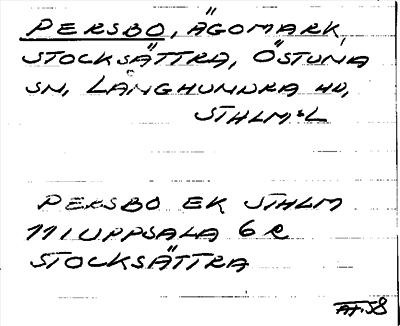 PERSBO, ÄGOMARK,
STOCKSÄTTRA, ÖSTUNA
SN, LÅNGHUNDRA HD,
STHLM:L
PERSBO EK STHLM
111 UPPSALA 6 R
STOCKSÄTTRA